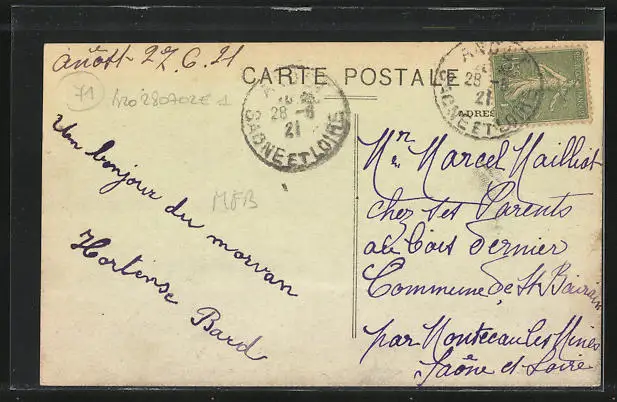 Anost 27.6.21
CARTE POSTALE
71
A20280702E1
ANOST
28 -6
21
SAONE ET LOIRE
ANOST
28 -6
21
SAONE ET LOIRE
ADRES
Un bonjour du morvan
Hortense Bard
MFB
Mr Marcel Mailliot
chez ses Parents
au Bois dernier
Commune de St Bérain
par Montceau les Mines
Saône et Loire